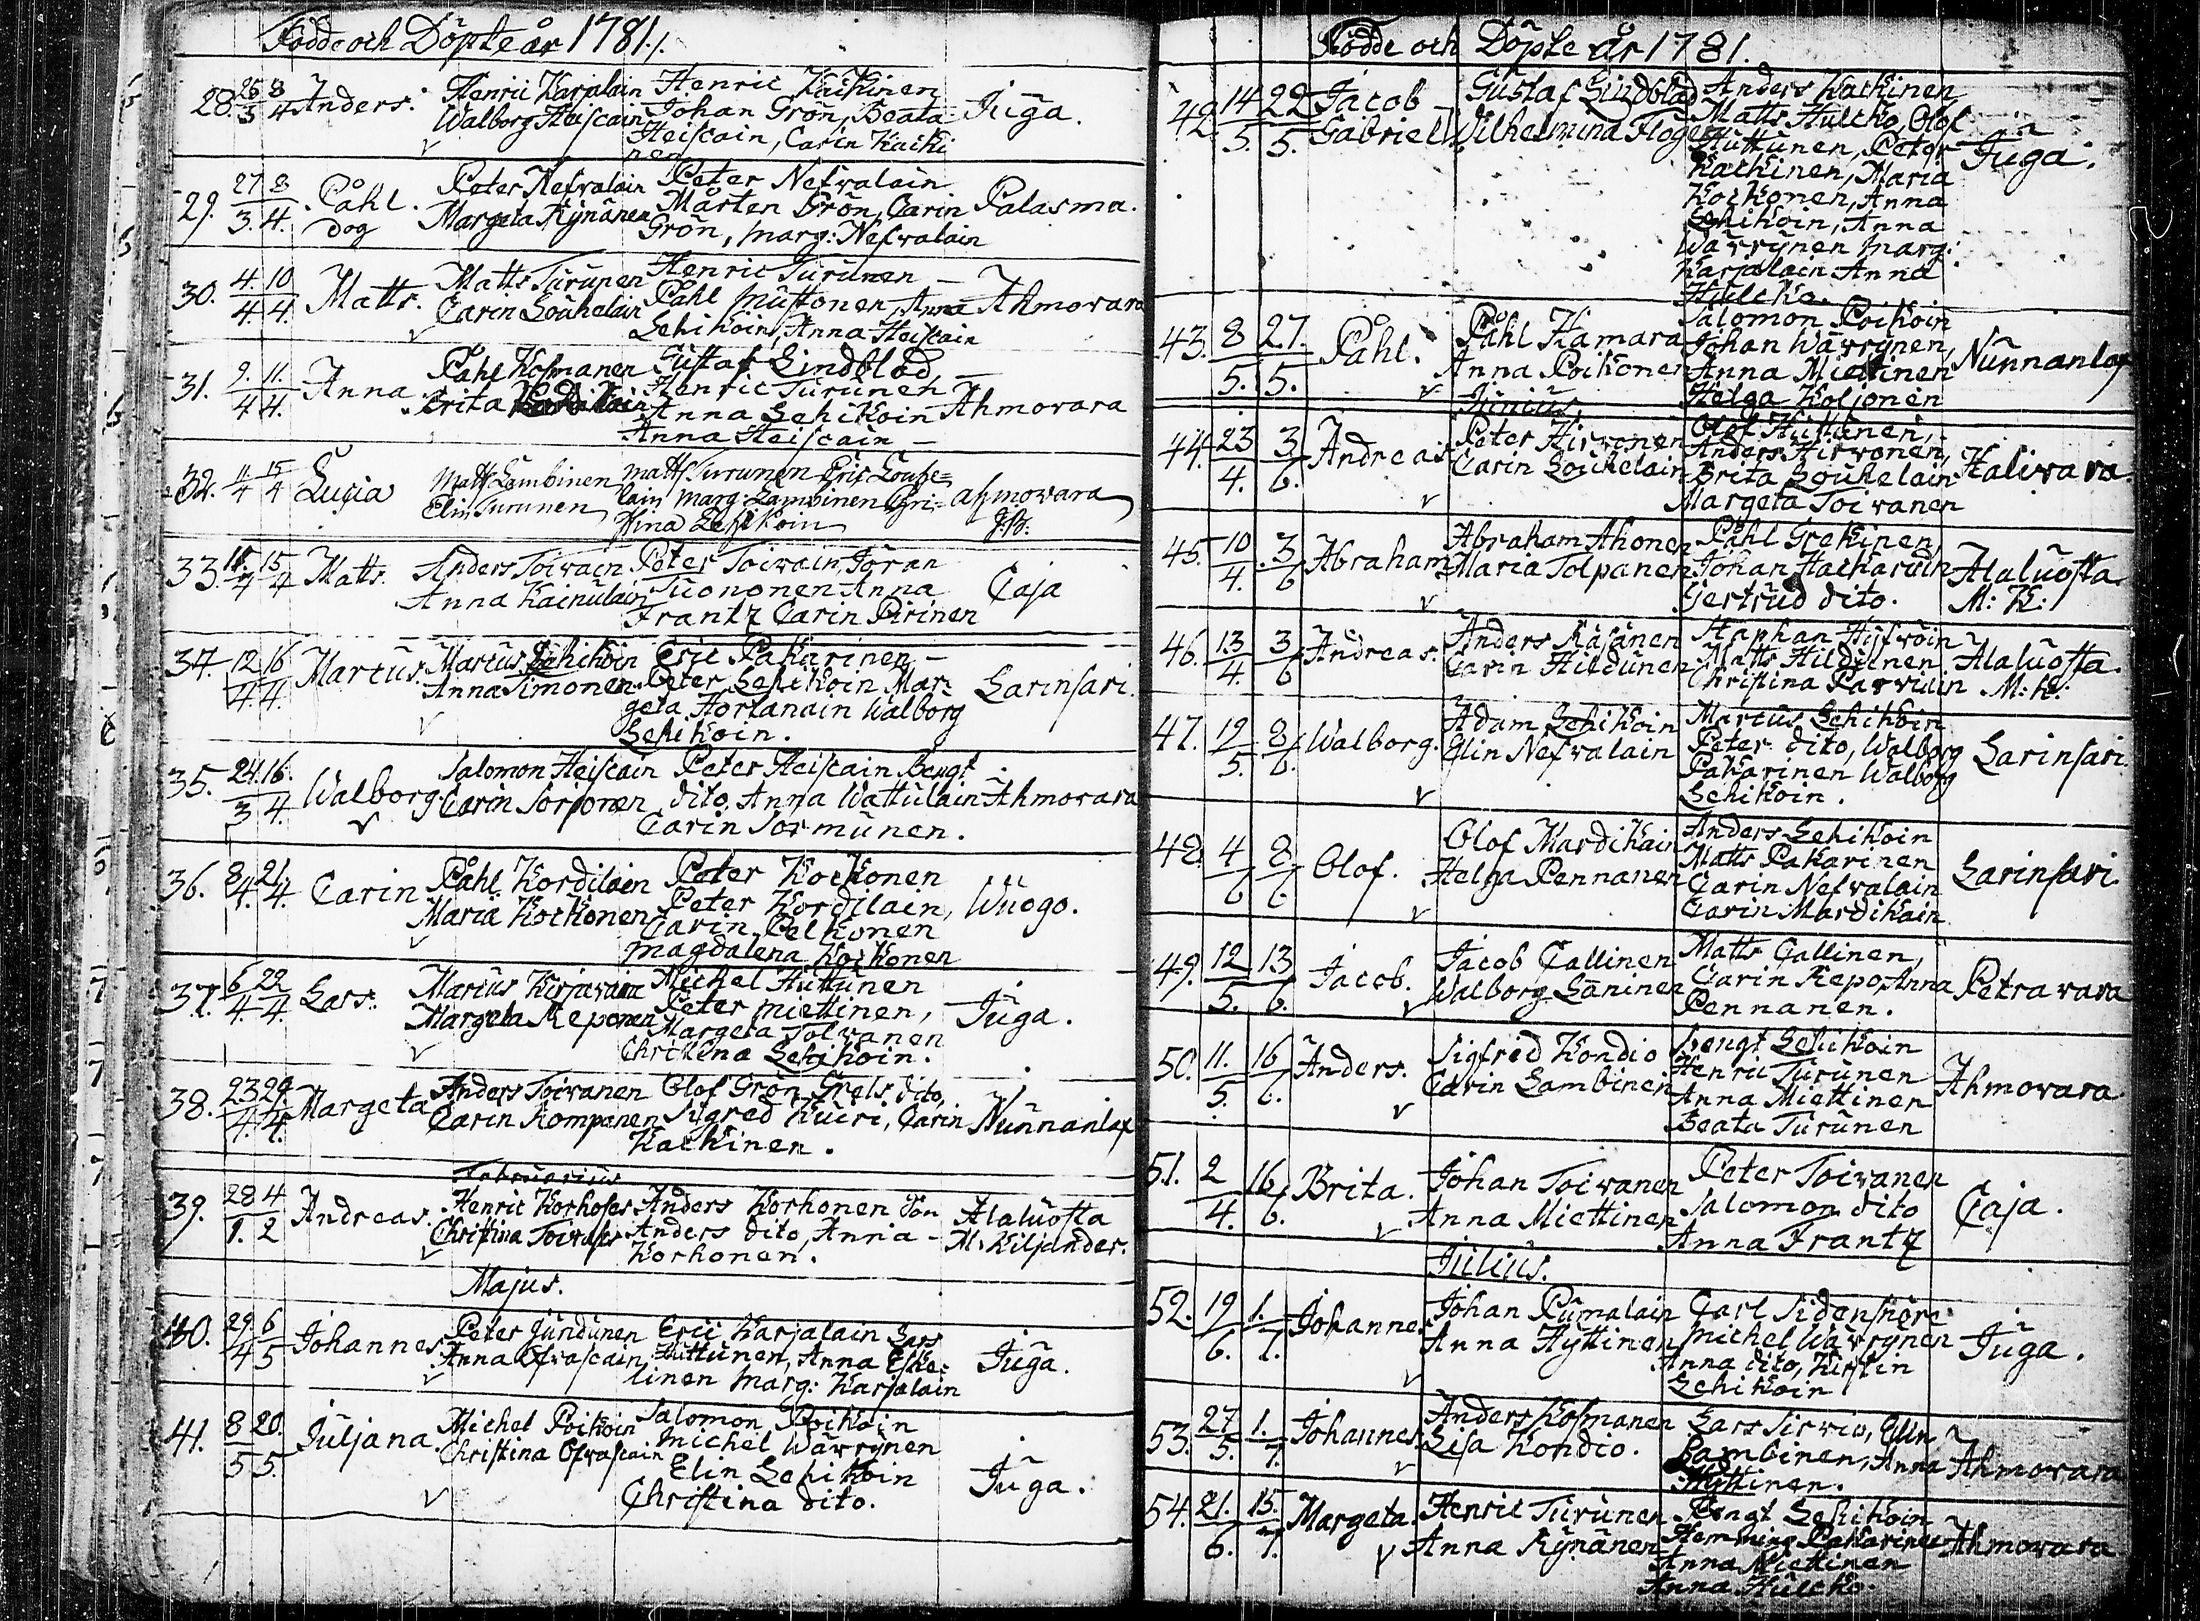 Födde och Döpte år 1781.
28. 26/3 8/4 Anders. Henric Karjalain Henric Kaikinen Juga.
Walborg Heiscain Johan Grön, Beata
Heiscain, Carin Kaiki
nen
29. 27/3. 8/4. Påhl. Peter Nefvalain Peter Nefvalain Palasma.
dog Margeta Rÿnänen Mårten Grön, Carin
Grön, Marg: Nefvalain
30. 4./4. 10/4. Matts. Matts Turunen Henric Turunen Ahmovara
Carin Louhelain Påhl Muttonen, Anna
Lehikoin, Anna Heiscain
31. 9./4 11./4. Anna Påhl Kosmanen Gustaf Lindblad, Ahmovara
Brita Henric Turunen
Anna Lehikoin
Anna Heiscain
32. 11/4 15/4 Lucia Matts Lambinen Matts Turunen Eric Louhe=
Elin Turunen lain Marg: Lambinen Chri= Ahmovara
stina Lehikoin
33. 15/4 Matts. Anders Toivain Peter Toivain, Jöran Caja
Anna Kainulain Tuononen Anna
Frantz Carin Pirinen
34. 12/4. 16/4. Marcus. Marcus Lehikoin Eric Pakarinen Larinsari.
Anna Simonen. Peter Lehikoin Mar-
geta Hortanain Walborg
Lehikoin.
35. 24/3 16./4. Walborg Salomon Heiscain Peter Heiscain Bengt Ahmovara
Carin Sorsonen dito, Anna Wattulain
Carin Sormunen.
36. 8/4. 21./4. Carin Påhl Kordilain Peter Kockonen Wuogo.
Maria Kockonen Peter Kordilain,
Carin Pelkonen
Magdalena Kockonen
37. 6/4. 22/4. Lars. Marcus Kirjavain Michel Huttunen Juga.
Margeta Reponen Peter Miettinen,
Margeta Tolvanen
Christina Lehikoin.
38. 23/4. 29/4. Margeta Anders Toivanen Olof Grön, Grels dito, Nunnanlax
Carin Komponen Sigfred Kuiri, Carin
Kaikinen.
Februarius
39. 28/1. 4/2 Andreas. Henric Korhoin Anders Korhonen Alaluosta
Christina Toivain Anders dito, Anna M. Kiljander.
Korhonen.
Majus.
40. 29/4 6/5 Johannes Peter Jundunen Eric Karjalain Lars Juga.
Anna Ofvascain Huttunen, Anna Eske-
linen Marg: Karjalain
41. 8/5 20./5. Juljana. Michel Poikoin Salomon Poikoin Juga.
Christina Ofvascain Michel Wärrynen
Elin Lehikoin
Christina dito.
Födde och Döpte år 1781.
42. 14/5. 22/5. Jacob Gustaf Lindblad Anders Kaikinen Juga.
Gabriel Wilhelmina Matts Hulcko, Olof
Huttunen, Peter
Kaikinen, Maria
Kockonen, Anna
Lehikoin, Anna
Wärrynen Marg:
Karjalain Anna
Hulcko.
43. 8/5. 27./5. Påhl. Påhl Kamara Salomon Poikoin Nunnanlax
Anna Poikonen Johan Wärrynen,
Anna Miettinen
Helga Koljonen
Junius.
44. 23/4. 3/6. Andreas Peter Hirvonen Olof Huttunen, Halivara.
Carin Louhelain Anders Hirvonen,
Brita Louhelain
Margeta Toivanen
45. 10/4. 3/6 Abraham Abraham Ahonen Påhl Grekinen, Alaluosta.
Maria Tolpanen Johan Hacharain M: K:
Gertrud dito.
46. 13/4. 3/6 Andreas. Anders Räsänen Staphan Hyfvöin Alaluosta.
Carin Hildunen Matts Hildunen M: K:
Christina Parviain
47. 19/5. 8/6. Walborg. Adam Lehikoin Marcus Lehikoin Larinsari.
Elin Nefvalain Peter dito, Walborg
Pakarinen Walborg
Lehikoin.
48. 4/6 8/6. Olof. Olof Mardikain Anders Lehikoin Larinsari
Helga Pennanen Matts Pakarinen
Carin Nefvalain
Carin Mardikain
49. 12/5. 13/6. Jacob. Jacob Callinen Matts Callinen, Petravara
Walborg Säninen Carin Repo, Anna
Pennanen.
50. 11./5. 16/6. Anders. Sigfred Kondio Bengt Lehikoin Ahmovara.
Carin Lambinen Henric Turunen
Anna Miettinen
Beata Turunen
51. 2/4. 16/6. Brita. Johan Toivanen Peter Toivanen Caja.
Anna Miettinen Salomon dito
Anna Frantz
Julius.
52. 19/6. 1./7. Johannes Johan Pumalain Carl Sidensnöre Juga.
Anna Hyttinen Michel Wärrynen
Anna dito, Kirstin
Lehikoin
53. 27/5. 1./7. Johannes Anders Kosmanen Lars Sirvio, Elin Ahmovara
Lisa Kondio. Lambinen, Anna
Hyttinen.
54. 21./6. 15./7. Margeta. Henric Turunen Bengt Lehikoin Ahmovara
Anna Rynänen Hemming Pakarinen
Anna Miettinen
Anna Hulcko.